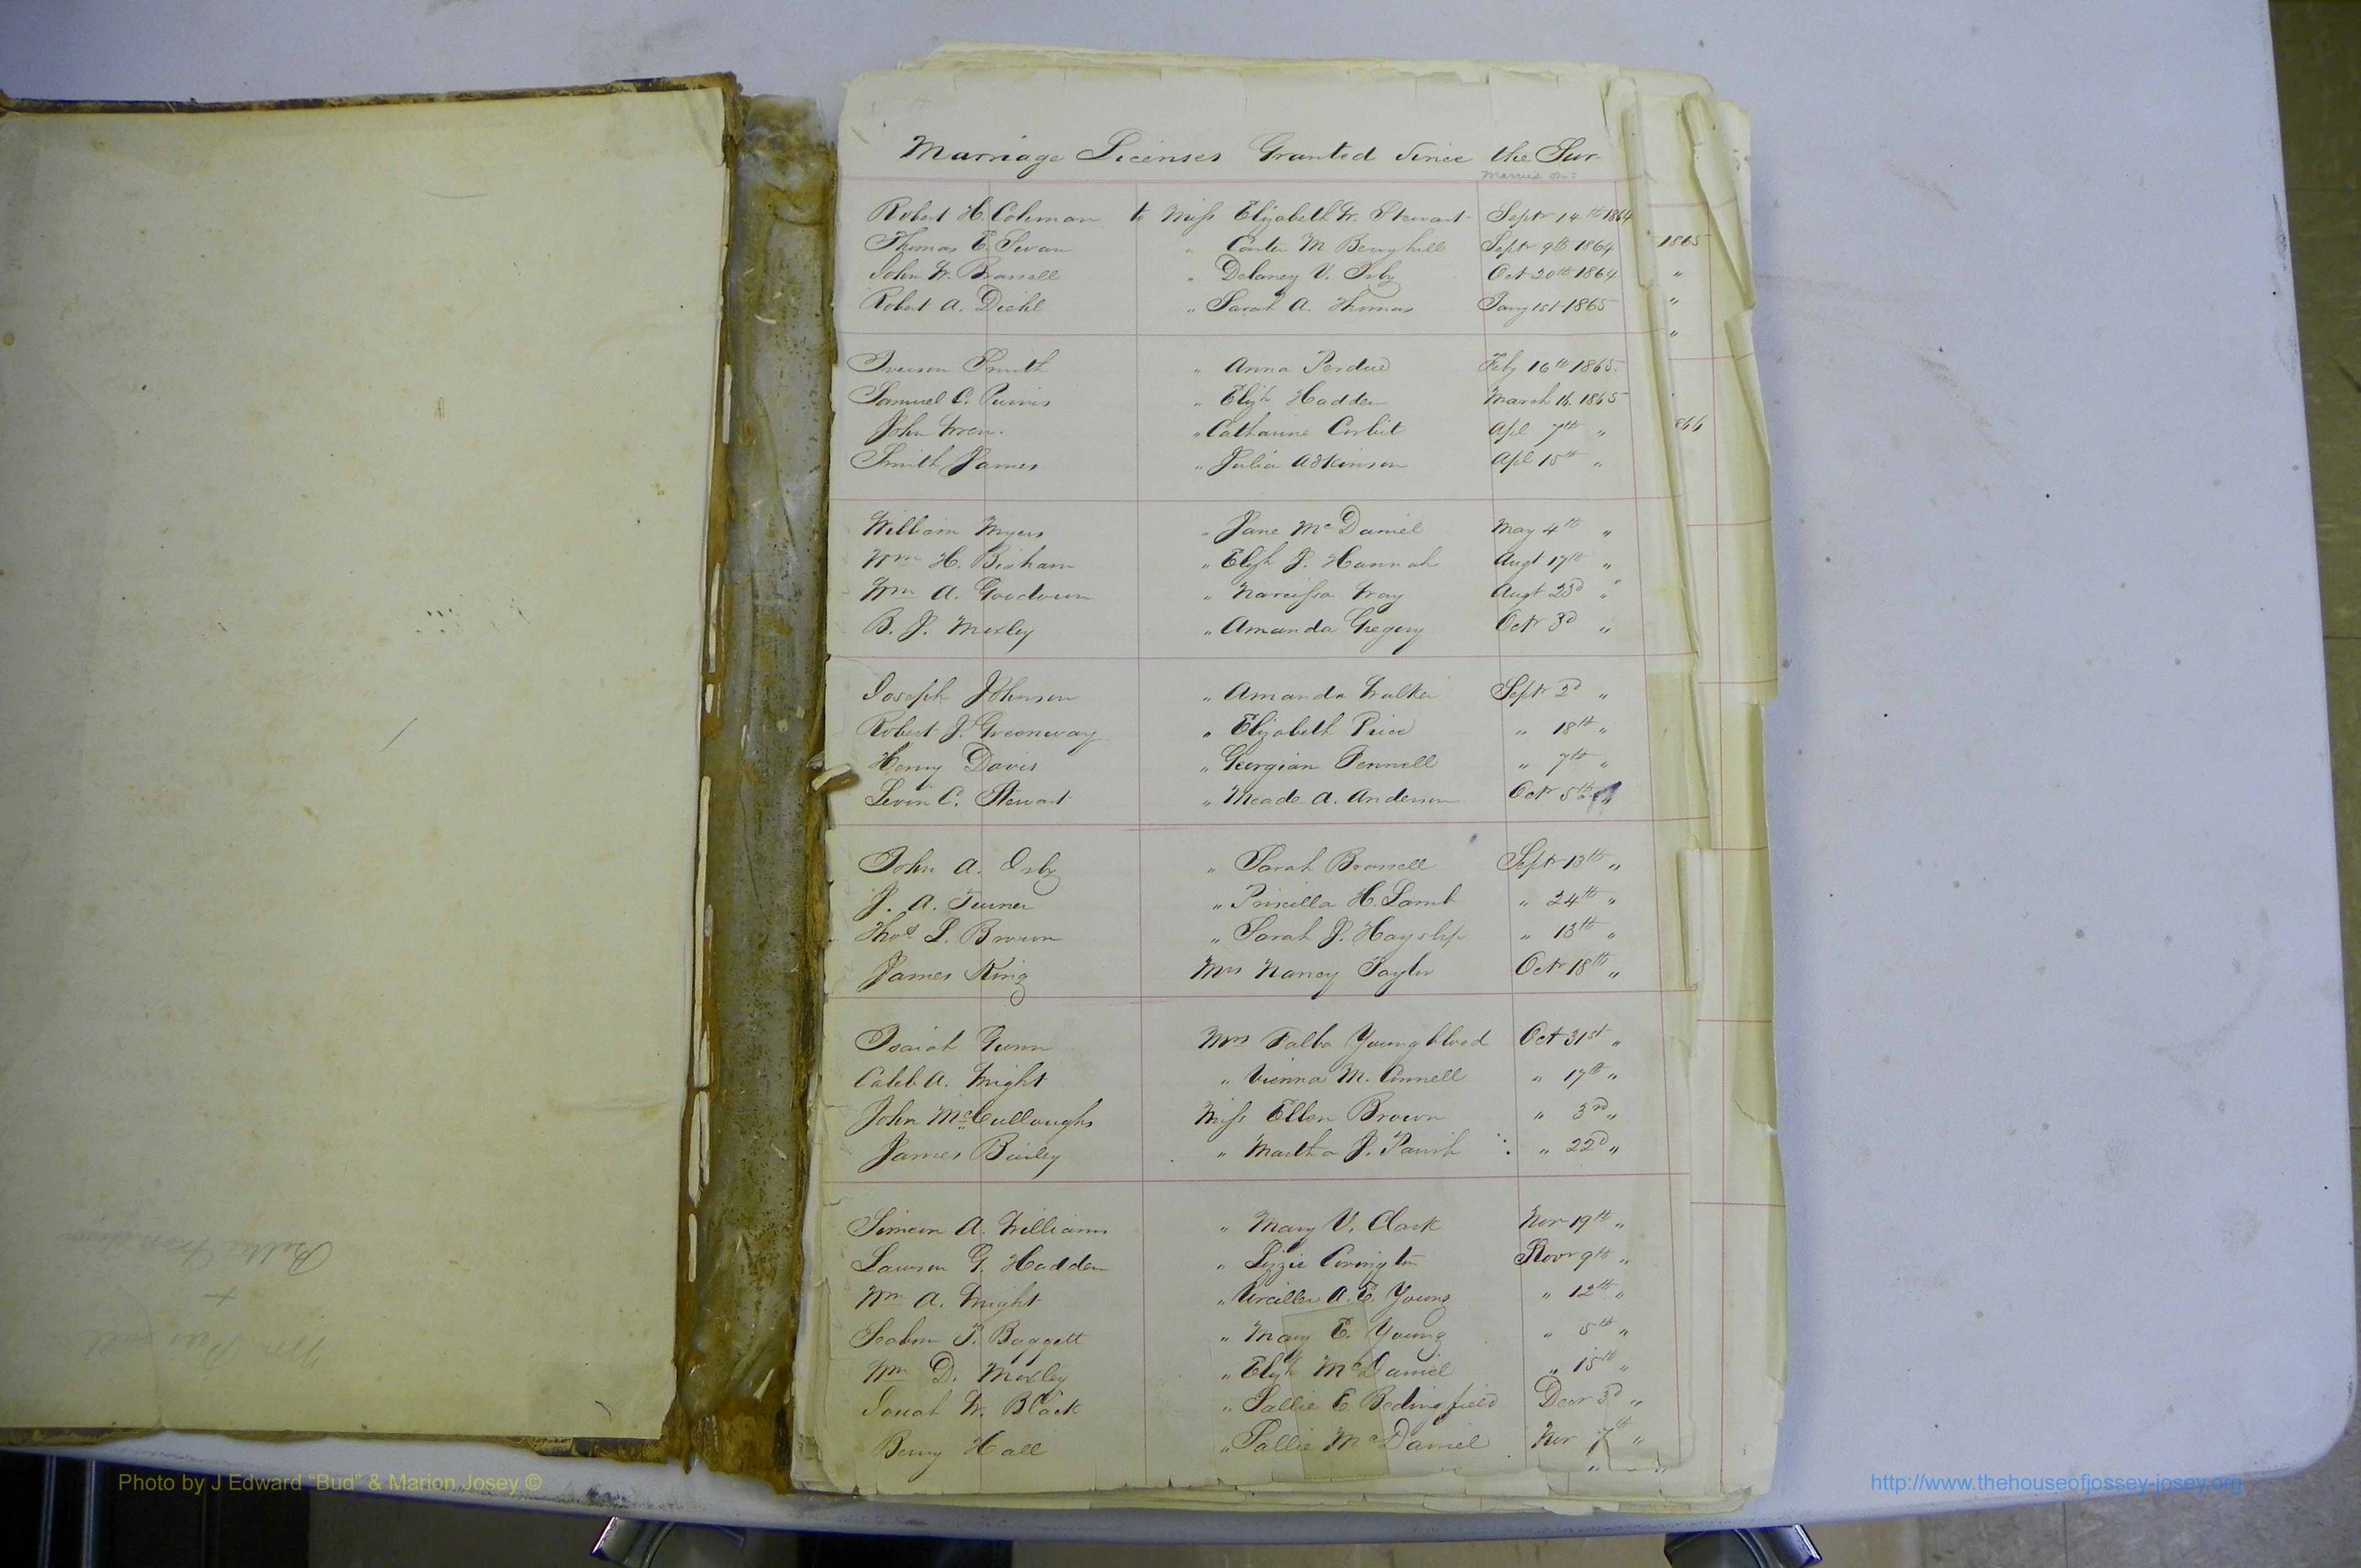 Marriage Licenses Granted Since the Sur
Married on=
Robert H. Coleman to Miss Elizabeth W. Stewart Septr 14th 1864
Thomas E. Swan " Carter M Berryhill Septr 9th 1864
John W. Brassell " Delaney V. Irby Oct 20th 1864
Robert A. Diehl " Sarah A. Thomas Jany 1st 1865
Iverson Smith " Anna Perdue Feby 16th 1865.
Samuel C. Purvis " Elizh Hadden March 16. 1865
John Wren. " Catharine Corbit Apl 7th "
Smith James " Julia Adkinson Apl 15th "
William Myers " Jane McDaniel May 4th "
Wm H. Bigham " Elizh J. Hannah Augt 17th "
Wm A. Goodown " Narcissa Wray Augt 23d "
B. J. Moxley " Amanda Gregory Octr 3d "
Joseph Johnson " Amanda Walker Septr 2d "
Robert J. Greenway " Elizabeth Price " 18th "
Henry Davis " Georgian Pennell " 7th "
Levin C. Stewart " Meade A. Anderson Octr 5th "
John A. Irby " Sarah Brassell Septr 13th "
J. A. Turner " Priscilla H. Lamb " 24th "
Thos L. Brown " Sarah J. Hayslip " 13th "
James King Mrs Nancy Taylor Octr 18th "
Isaiah Gunn Mrs Talba Youngblood Oct 31st "
Caleb A. Wright " Vienna M. Connell " 17th "
John McCulloughs Miss Ellen Brown " 3rd "
James Bailey " Martha J. Parish " 22d "
Simeon A. Williams " Mary V. Clark Nov 19th "
Lawson G. Hadden " Lizzie Covington Novr 9th "
Wm A. Wright " Urcilla A. E. Young " 12th "
Seaborn Baggett " Mary E. Young " 5th "
Wm D. Moxley " Elizh McDaniel " 15th "
Josiah W. Black " Sallie E Bedingfield Decr 3d "
Berry Hall " Sallie McDaniel Nov 7th "
1865
"
"
"
866
Photo by J Edward “Bud” & Marion Josey ©
http://www.thehouseofjossey-josey.org